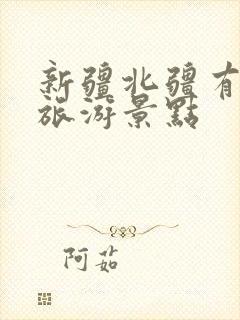 新疆北疆有
旅游景點
阿茹